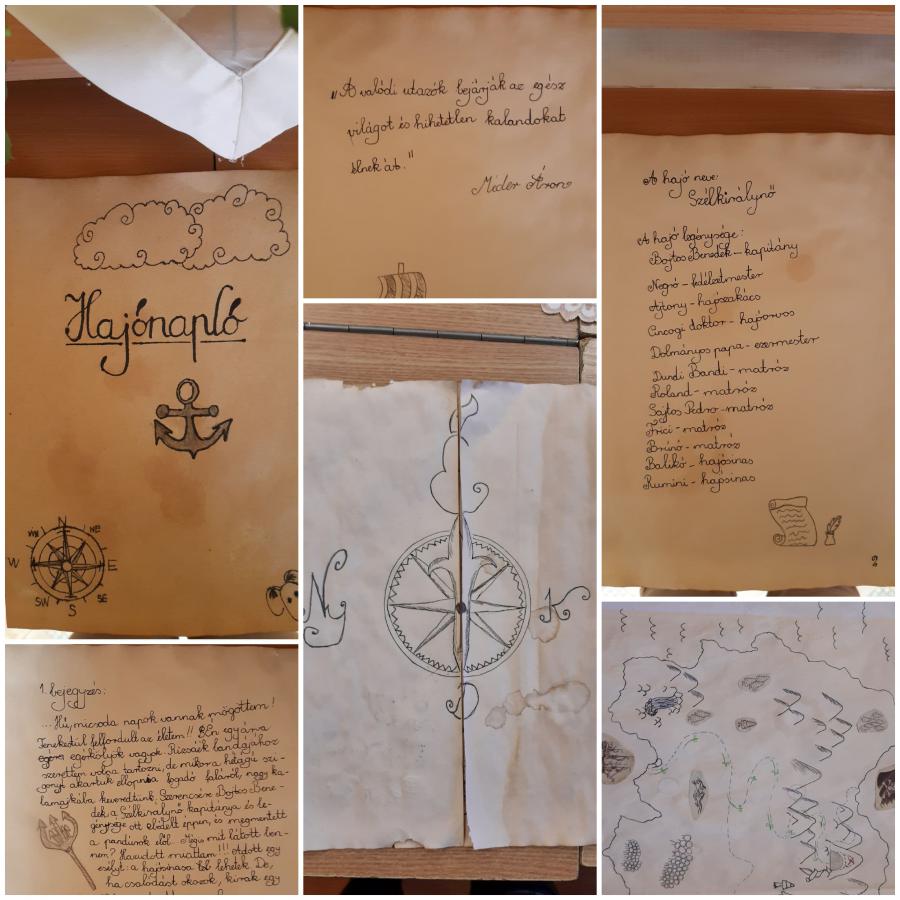 Hajónapló
N
NE
E
SE
S
SW
W
WN
„A valódi utazók bejárják az egész
világot és hihetetlen kalandokat
élnek át."
Mider Áron
A hajó neve:
Szélkirálynő
A hajó legénysége:
Bojtos Benedek - kapitány
Negró - fedélzetmester
Ajtony - hajószakács
Cincogi doktor - hajóorvos
Dolmányos papa - ezermester
Dundi Bandi - matróz
Roland - matróz
Sajtos Pedro - matróz
Frici - matróz
Brúnó - matróz
Balikó - hajósinas
Rumini - hajósinas
Ny
K
D
1. bejegyzés:
...Hú, micsoda napok vannak mögöttem!
Fenekestül felfordult az életem!! Én egy árva
egérkölyök vagyok. Rizsáék bandájához
szerettem volna tartozni, de mikor a hétágú szi-
gonyt akartuk ellopni a fogadó faláról, nagy ka-
lamajkába keveredtünk. Szerencsére Bojtos Bene-
dek a Szélkirálynő kapitánya és le-
génysége ott ebédelt éppen, és megmentett
a pandúrok elől. Mégis mit látott ben-
nem? Hazudott miattam!!! Adott egy
esélyt: a hajósinasa lehetek. De,
ha csalódást okozok, kirak egy